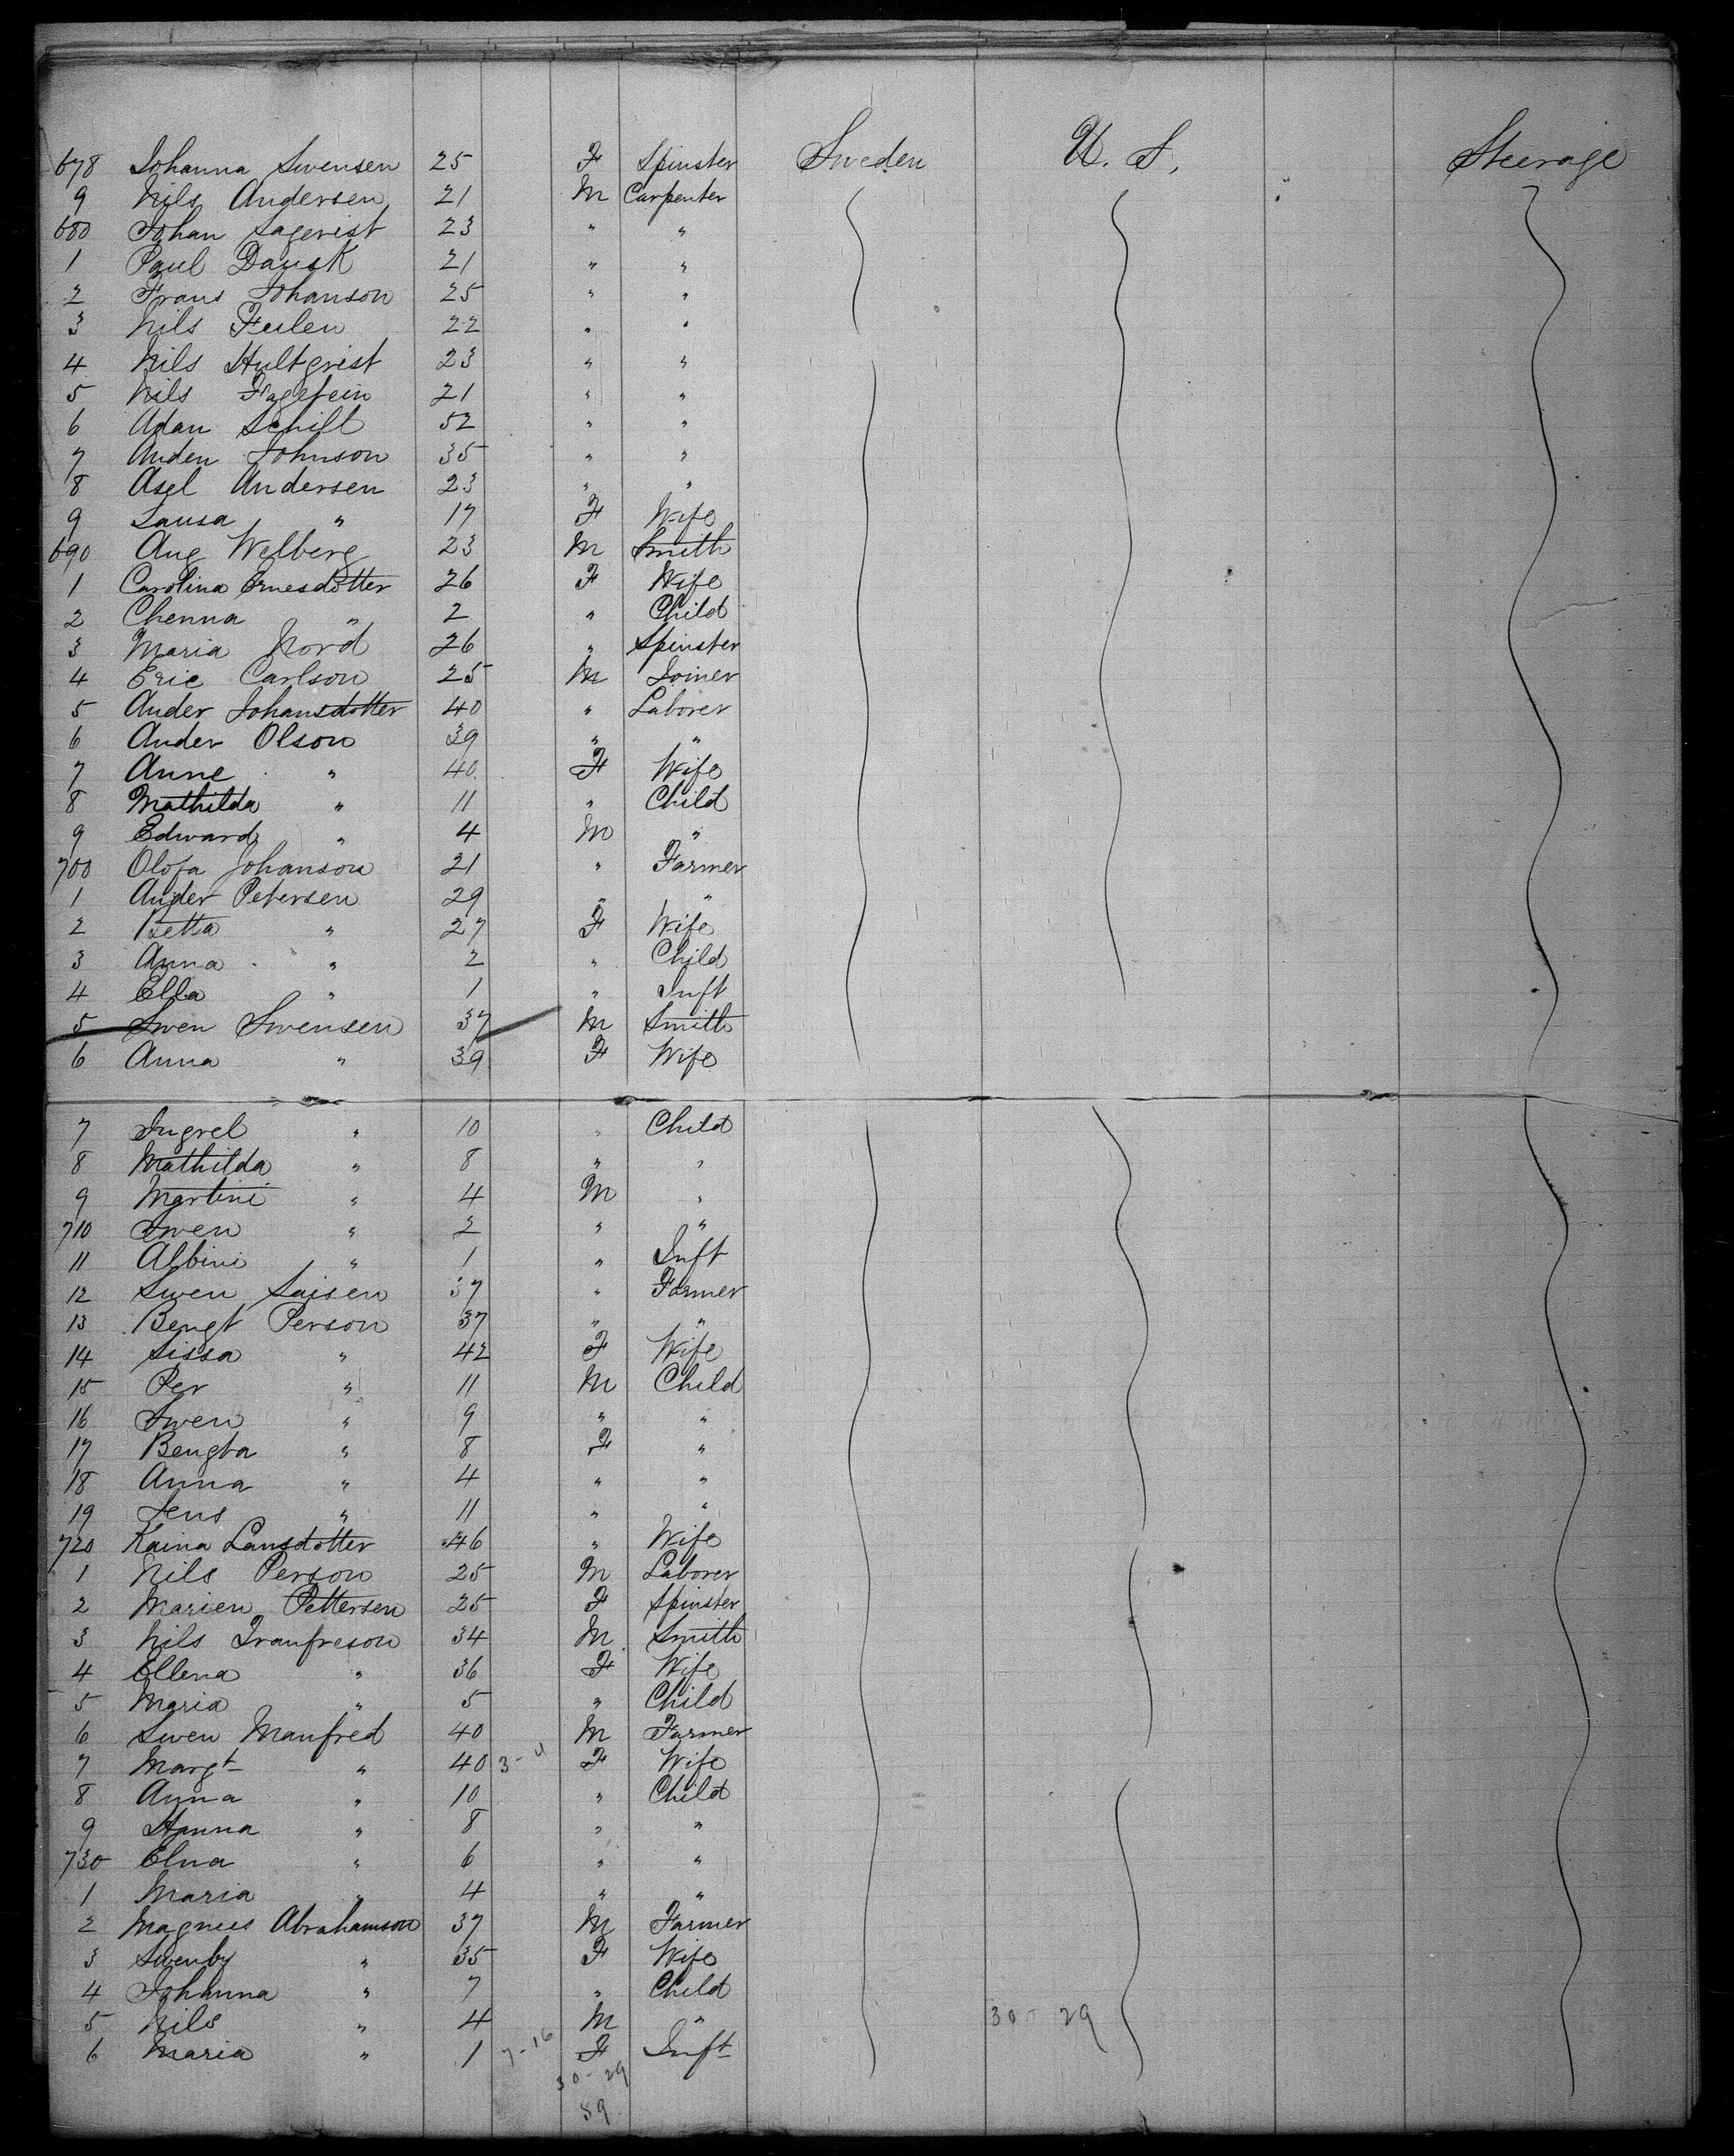 678 Johanna Swensen 25 F Spinster Sweden U. S. Steerage
9 Nils Andersen 21 M Carpenter
680 Johan Lagerist 23 " "
1 Paul Dansk 21 " "
2 Frans Johanson 25 " "
3 Nils Feilen 22 " "
4 Nils Hultgrist 23 " "
5 Nils 21 " "
6 Adan Schill 52 " "
7 Anden Johnson 35 " "
8 Asel Andersen 23 " "
9 Lausa " 17 F Wife
690 Aug Welberg 23 M Smith
1 Carolina Ernesdotter 26 F Wife
2 Chenna " 2 " Child
3 Maria Nord 26 " Spinster
4 Eric Carlson 25 M Joiner
5 Ander Johansdotter 40 " Laborer
6 Ander Olson 39 " "
7 Anne " 40 F Wife
8 Mathilda " 11 " Child
9 Edward " 4 M "
700 Olofa Johanson 21 " Farmer
1 Ander Petersen 29 " "
2 Betta " 27 F Wife
3 Anna " 2 " Child
4 Ella " 1 " Inft
5 Swen Swensen 37 M Smith
6 Anna " 39 F Wife
7 Ingrel " 10 " Child
8 Mathilda " 8 " "
9 Martini " 4 M "
710 Swen " 2 " "
11 Albini " 1 " Inft
12 Swen Saisen 37 " Farmer
13 Bengt Person 37 " "
14 Sissa " 42 F Wife
15 Per " 11 M Child
16 Swen " 9 " "
17 Bengta " 8 F "
18 Anna " 4 " "
19 Jens " 11 " "
720 Kaina Lansdotter 46 " Wife
1 Nils Person 25 M Laborer
2 Marien Pettersen 25 F Spinster
3 Nils Tranfreson 34 M Smith
4 Ellena " 36 F Wife
5 Maria " 5 " Child
6 Swen Manfred 40 M Farmer
7 Margt " 40 3-4 F Wife
8 Anna " 10 " Child
9 Hanna " 8 " "
730 Elna " 6 " "
1 Maria " 4 " "
2 Magnus Abrahamson 37 M Farmer
3 Swenby " 35 F Wife
4 Johanna " 7 " Child
5 Nils " 4 M " 30-29
6 Maria " 1 7-16 F Inft
30-29
59